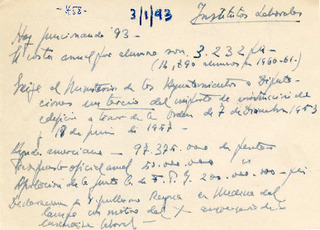 458.
3/1/93
Institutos Laborales
Hoy funcionando 93 -
El coste anual por alumno son 3.232 pts
(14,890 alumnos en 1960-61.)
Exige el Ministerio de los Ayuntamientos o Diputa-
ciones un tercio del importe de construcción del
edificio a tenor de la Orden de 7 de Diciembre 1953
y 18 de junio de 1957 -
Ayuda americana - 97.375.000 de pesetas
Presupuesto oficial anual 50.000.000
Aportación de la Junta C. de F. P. I. 200.000.000 -
Declaraciones de Guillermo Reyna en Medina del
Campo con motivo del X aniversario de la
enseñanza laboral -